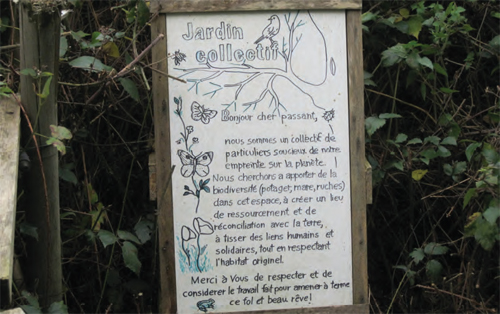 Jardin
collectif
Bonjour cher passant,
nous sommes un collectif de
particuliers soucieux de notre
empreinte sur la planète !
Nous cherchons a apporter de la
biodiversité (potager, mare, ruches)
dans cet espace, à créer un lieu
de ressourcement et de
réconciliation avec la terre,
à tisser des liens humains et
solidaires, tout en respectant
l'habitat originel.
Merci à Vous de respecter et de
considerer le travail fait pour amener à terme
ce fol et beau rêve!